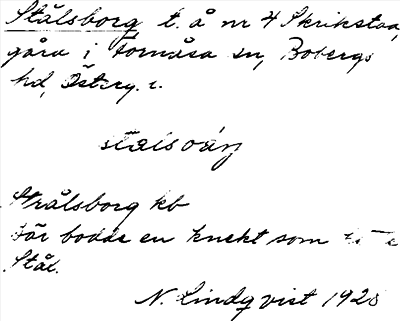 Stålsborg t. å nr 4 Skrikstad,
gård i Fornåsa sn, Bobergs
hd, Österg. l.
Strålsborg kb
Här bodde en knekt som
Stål.
N. Lindqvist 1925